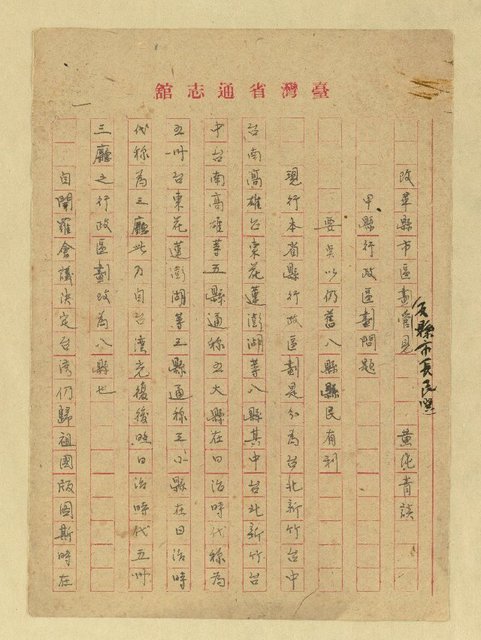 館志通省灣臺
改革縣市區劃管見　黃純青談
及縣市長民選
甲、縣行政區劃問題
要点以仍舊八縣縣民有利
現行本省縣行政區劃是分為台北新竹台中
台南高雄台東花蓮澎湖等八縣其中台北新竹台
中台南高雄等五縣通称五大縣在日治時代称為
五州台東花蓮澎湖等三縣通称三小縣在日治時
代称為三廳此乃自台湾光復後略日治時代五州
三廳之行政區劃改為八縣也
自開羅會議決定台湾仍歸祖國版圖斯時在